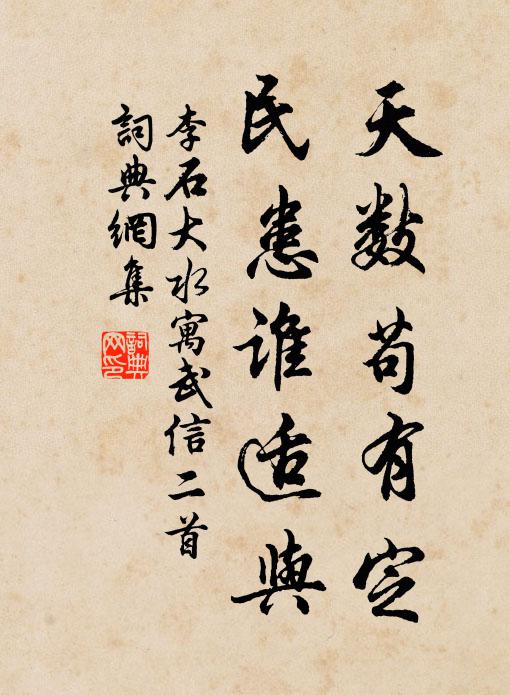 天數苟有定
民患誰適與
李石大水寓武信二首
詞典網集
詞典網印